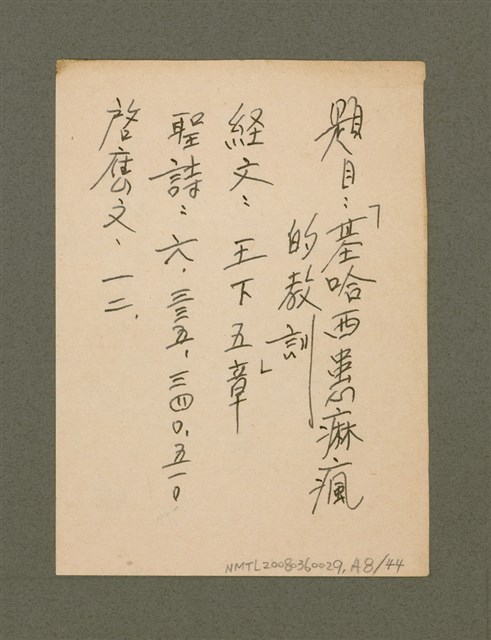 題目：「基哈西患痲瘋
的教訓」
経文：王下五章
聖詩：六．三三五．三四〇．五一〇
啓應文、一二．
NMTL20080360029, A8/44